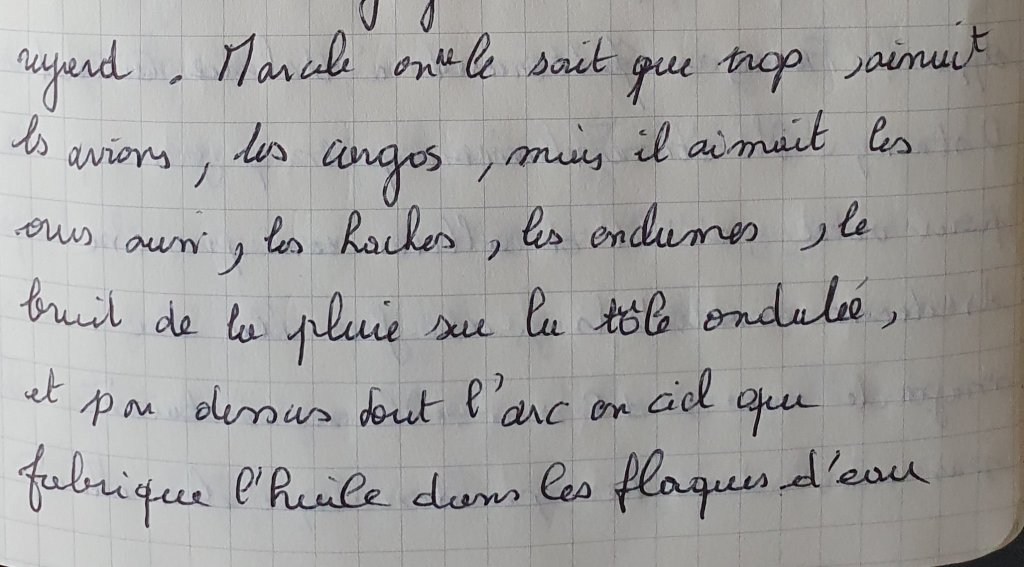 regard. Marcale on ne le sait que trop, aimait
les avions, les cargos, mais il aimait les
ours aussi, les haches, les enclumes, le
bruit de la pluie sur la tôle ondulée,
et par dessus tout l'arc en ciel que
fabrique l'huile dans les flaques d'eau